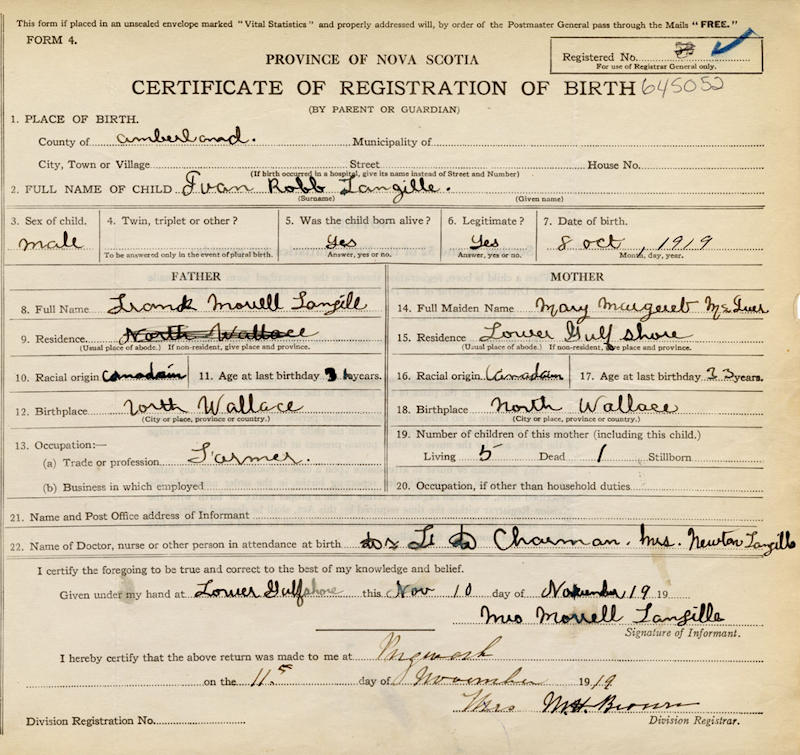 This form if placed in an unsealed envelope marked "Vital Statistics" and properly addressed will, by order of the Postmaster General pass through the Mails "FREE."
FORM 4.
PROVINCE OF NOVA SCOTIA
Registered No.
For use of Registrar General only.
CERTIFICATE OF REGISTRATION OF BIRTH 645052
(BY PARENT OR GUARDIAN)
1. PLACE OF BIRTH.
County of Cumberland. Municipality of
City, Town or Village Street House No.
(If birth occurred in a hospital, give its name instead of Street and Number)
2. FULL NAME OF CHILD Ivan Robb Langille.
(Surname) (Given name)
3. Sex of child. 4. Twin, triplet or other? 5. Was the child born alive? 6. Legitimate? 7. Date of birth.
male Yes Yes 8 oct, 1919
To be answered only in the event of plural birth. Answer, yes or no. Answer, yes or no. Month, day, year.
FATHER MOTHER
8. Full Name Frank Morrell Langill 14. Full Maiden Name Mary Margeret
9. Residence North Wallace 15. Residence Lower Gulf shore
(Usual place of abode.) If non-resident, give place and province. (Usual place of abode.) If non-resident, give place and province.
10. Racial origin Canadain 11. Age at last birthday years. 16. Racial origin Canadain 17. Age at last birthday 33 years.
12. Birthplace North Wallace 18. Birthplace North Wallace
(City or place, province or country.) (City or place, province or country.)
13. Occupation:— 19. Number of children of this mother (including this child.)
(a) Trade or profession Farmer. Living 5 Dead 1 Stillborn
(b) Business in which employed 20. Occupation, if other than household duties
21. Name and Post Office address of Informant
22. Name of Doctor, nurse or other person in attendance at birth Charman. Mrs. Newton Langille
I certify the foregoing to be true and correct to the best of my knowledge and belief.
Given under my hand at Lower Gulf shore this Nov 10 day of November 19 19
Mrs Morrell Langille
Signature of Informant.
I hereby certify that the above return was made to me at Pugwash
on the 11th day of November 1919
Mrs M.H. Brown
Division Registration No. Division Registrar.